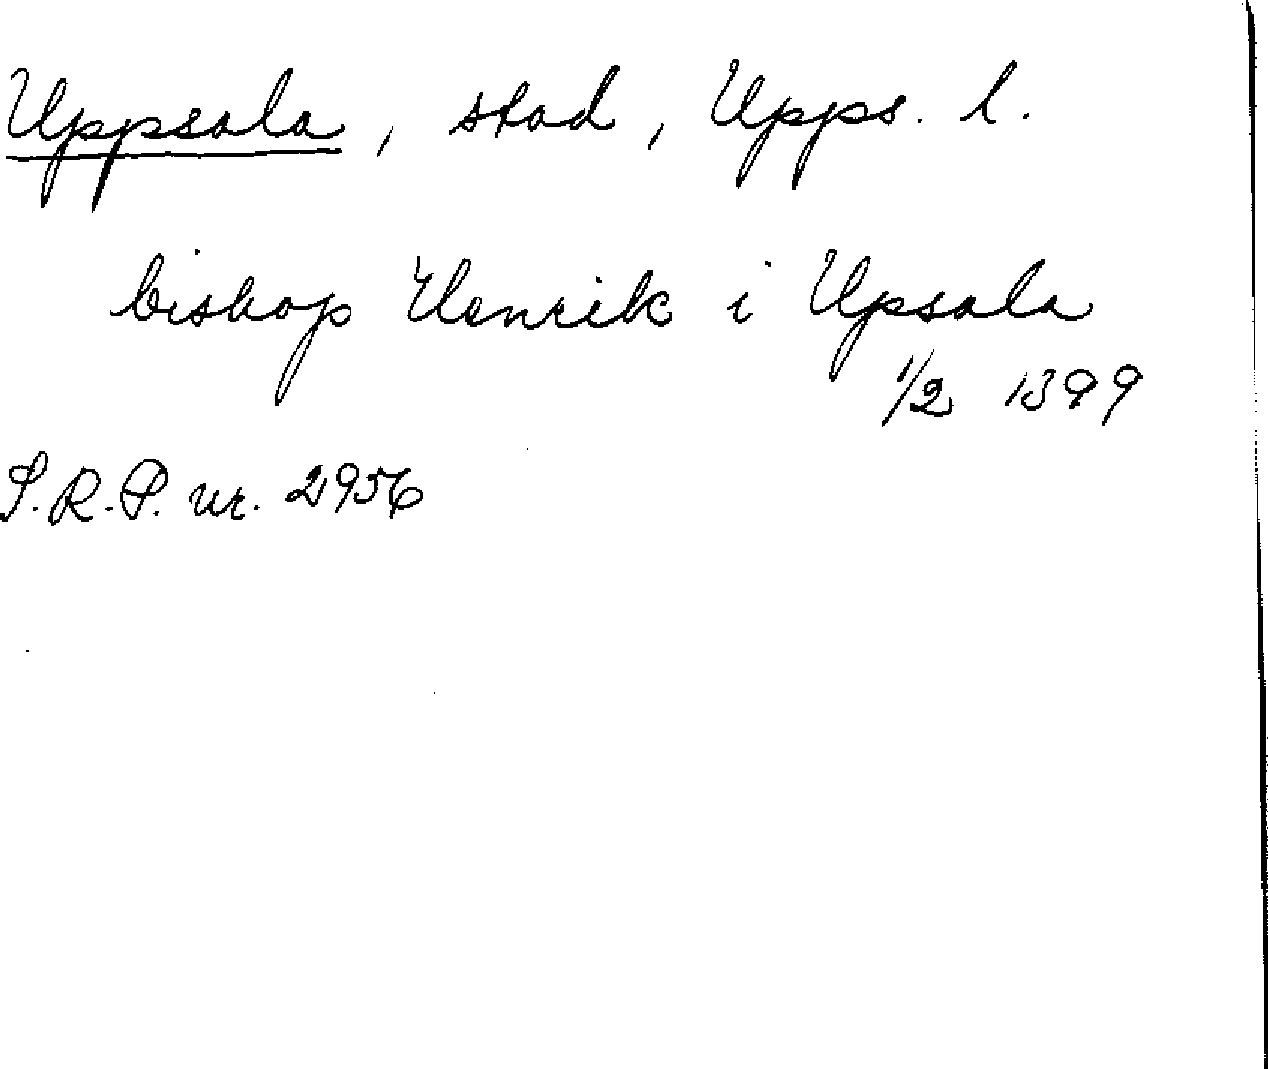 Uppsala, stad, Upps. l.
biskop Henrik i Upsala
1/2 1399
S.R.P. nr. 2956